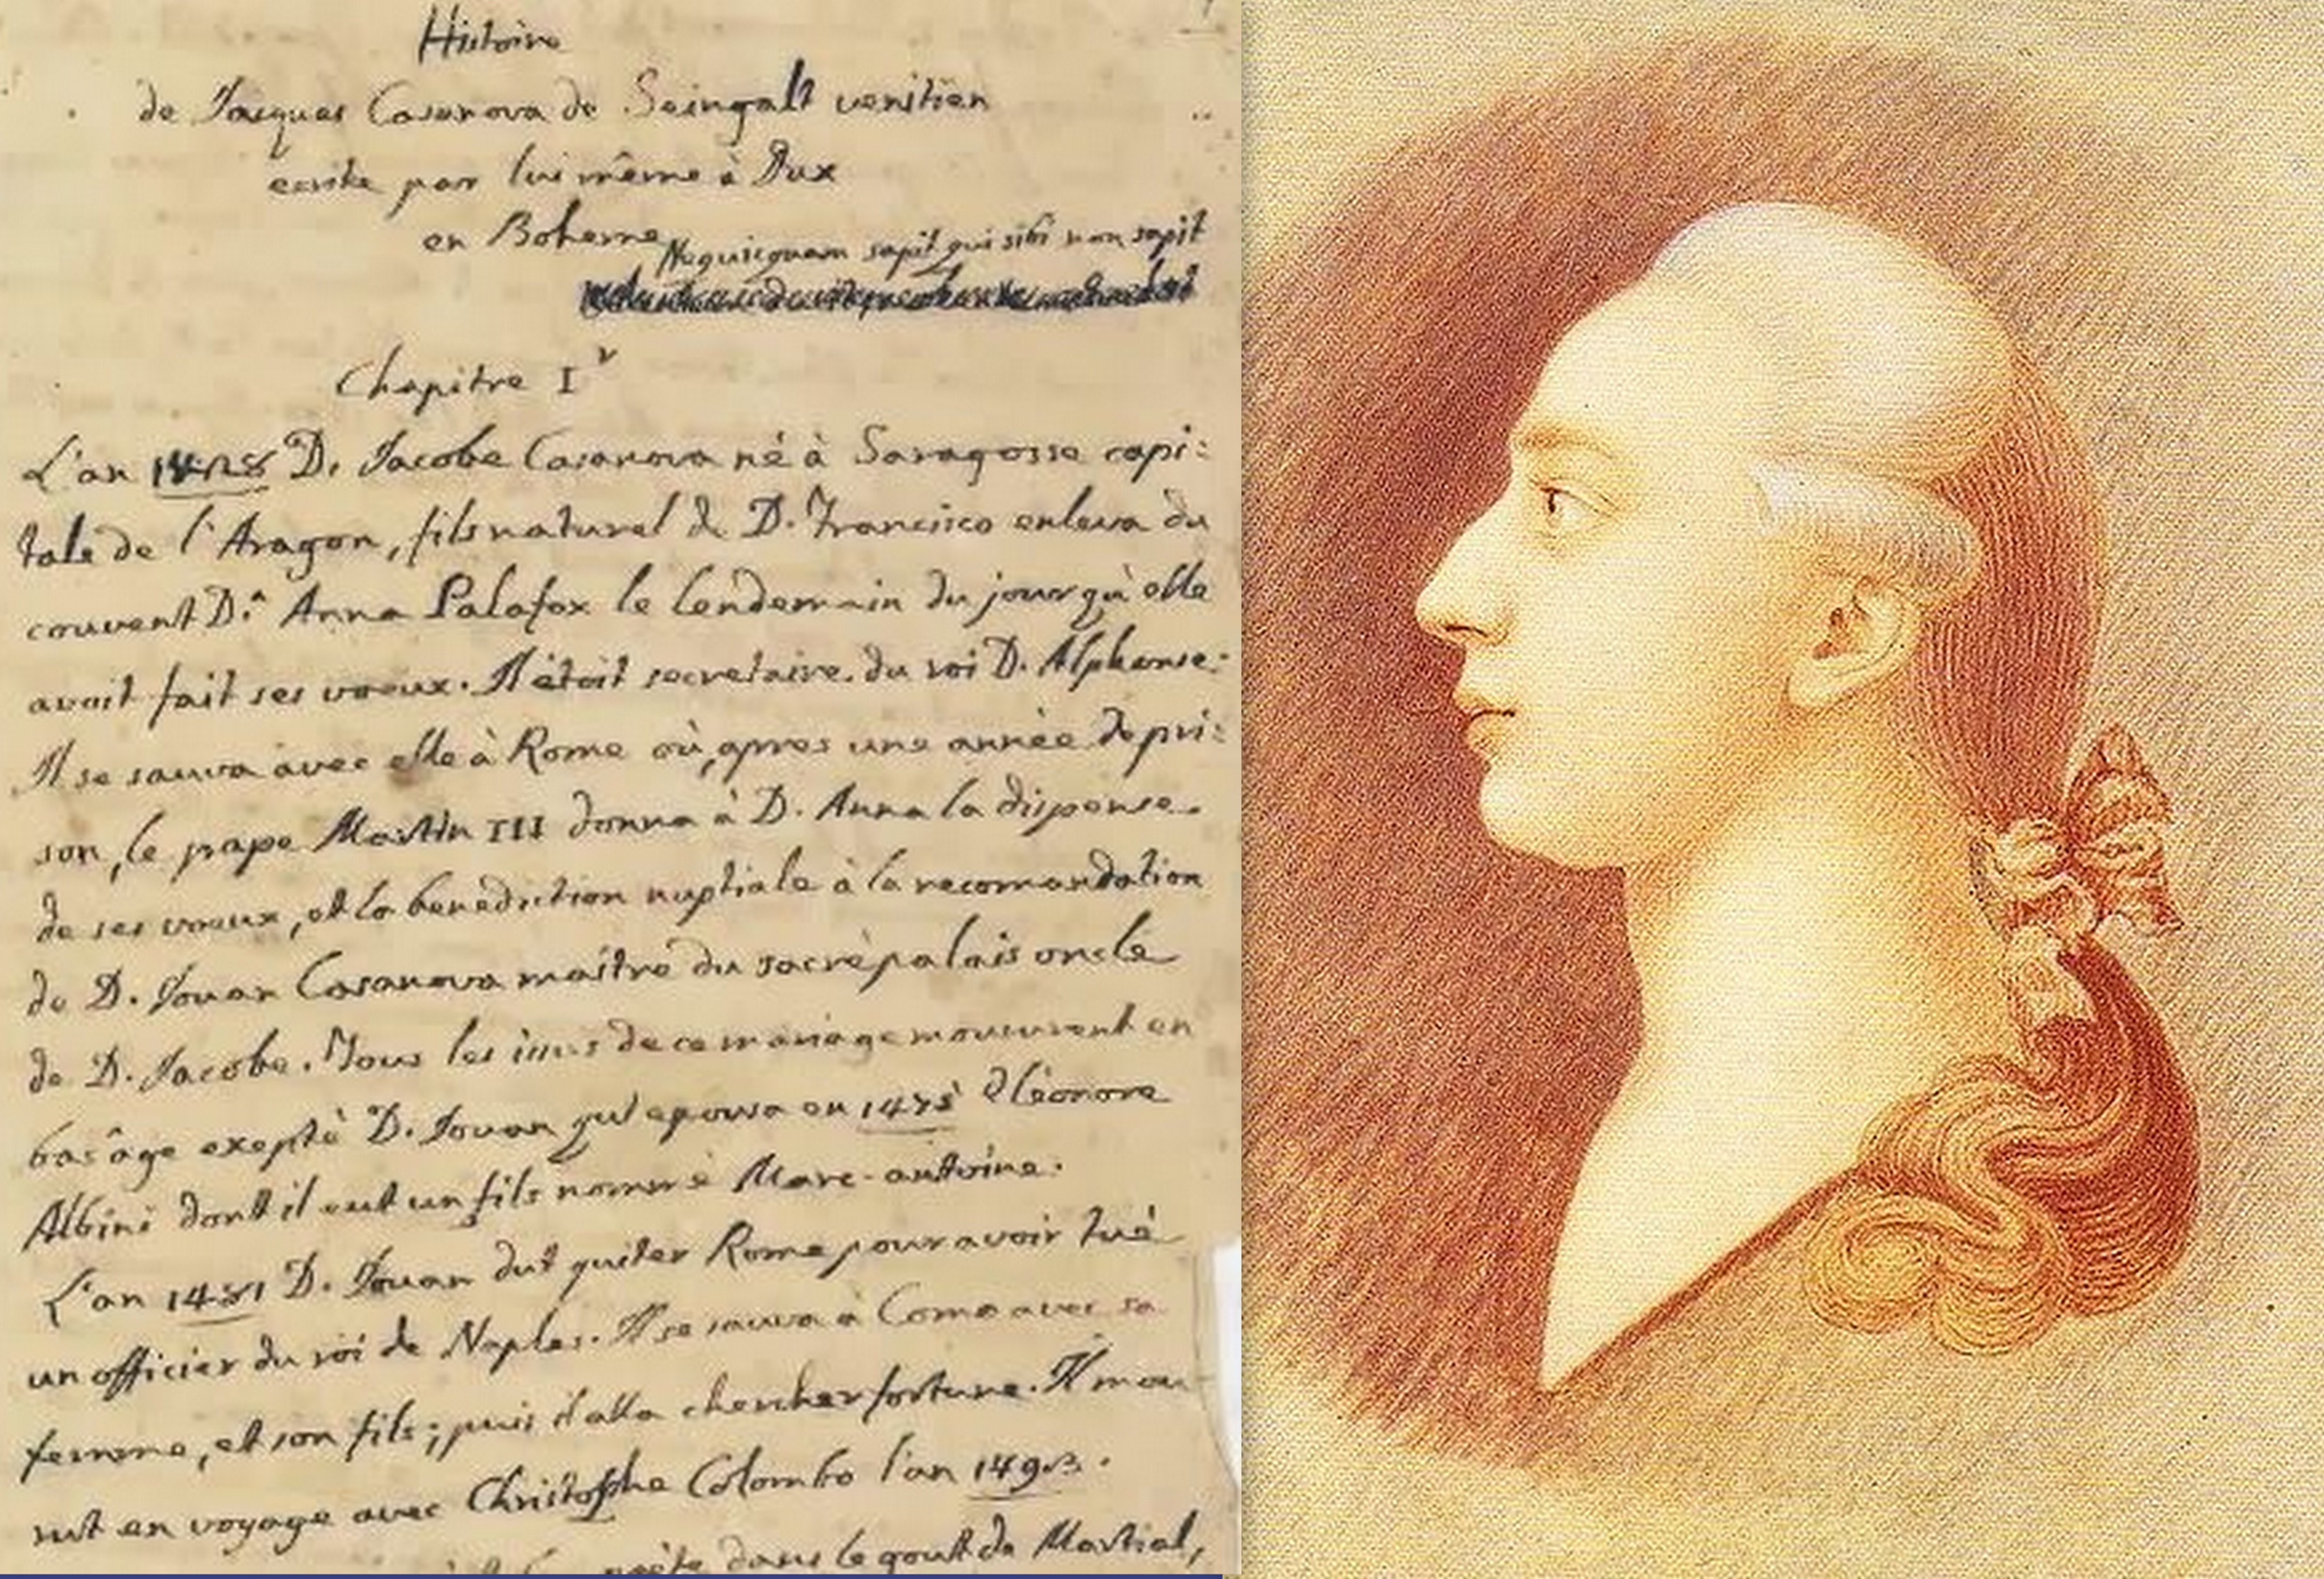 Histoire
de Jacques Casanova de Seingalt venitien
ecrite par lui même à Dux
en Boheme
Nequicquam sapit qui sibi non sapit
Chapitre I^r
L'an 1428 D. Jacobe Casanova né à Saragosse capi:
tale de l'Aragon, fils naturel de D. Francisco enleva du
couvent D.ª Anna Palafox le lendemain du jour qu'elle
avoit fait ses voeux. Il étoit secretaire du roi D. Alphonse.
Il se sauva avec elle à Rome où, apres une année de pri:
son, le pape Martin III donna à D. Anna la dispense
de ses voeux, et la benediction nuptiale à la recomandation
de D. Jouan Casanova maître du sacré palais oncle
de D. Jacobe. Tous les de ce mariage moururent en
bas âge exepté D. Jouan qui epousa en 1475 Eléonore
Albini dont il eut un fils nommé Marc-antoine.
L'an 1481 D. Jouan dut quiter Rome pour avoir tué
un officier du roi de Naples. Il se sauva à Como avec sa
femme, et son fils; puis il alla chercher fortune. Il mou-
rut en voyage avec Christophe Colombo l'an 1493.
poète dans le gout de Martial,